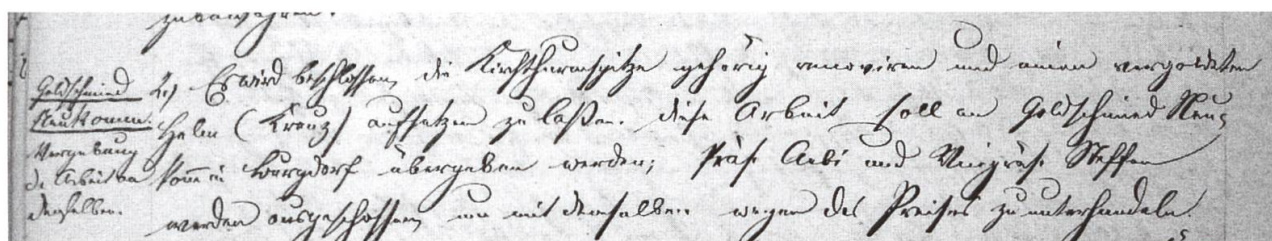 zubewahren.
Goldschmied
Neukomm.
Vergebung
de Arbeit an
denselben.
2.) Es wird beschlossen, die Kirchthurmspitze gehörig renoviren und einen vergoldeten
Helm (Kreuz) aufsetzen zu laßen. diese Arbeit soll an Goldschmied Neu-
komm in Burgdorf übergeben werden; Präs. Aebi und Vicepräs. Steffen
werden ausgeschossen, um mit demselben wegen des Preises zu unterhandeln.